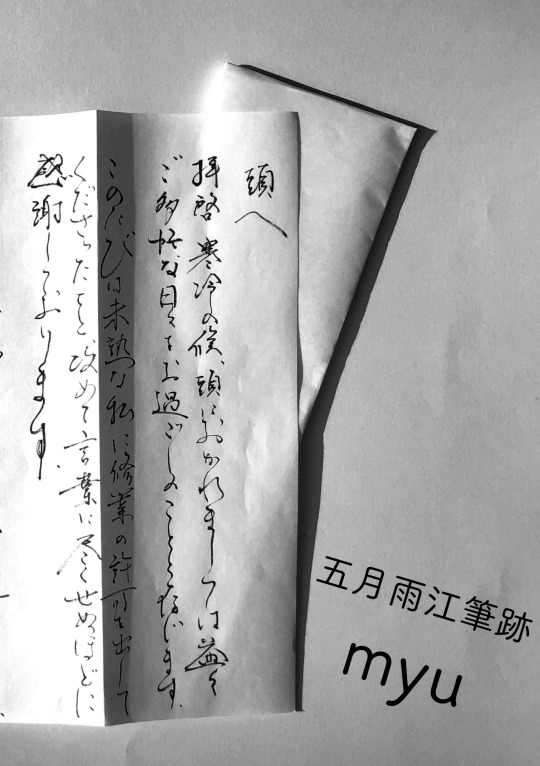 頭へ
拝啓 寒冷の候、頭におかれましては益々
ご多忙な日々をお過ごしのことと存じます。
このたびは未熟な私に修業の許可を出して
くださったこと改めて言葉に尽くせぬほどに
感謝しております。
五月雨江筆跡
myu